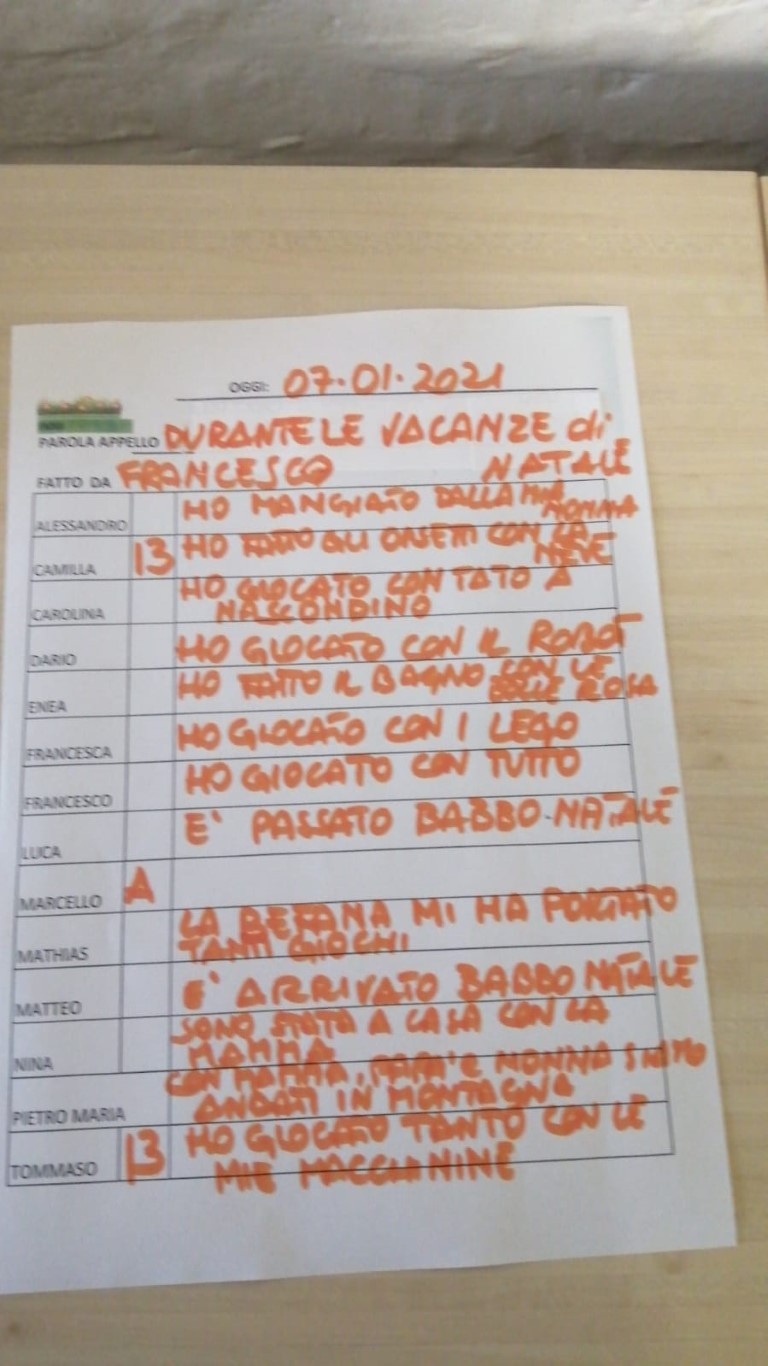 OGGI: 07.01.2021
PAROLA APPELLO DURANTE LE VACANZE di
NATALE
FATTO DA FRANCESCO
ALESSANDRO HO MANGIATO DALLA MIA
NONNA
CAMILLA 13 HO FATTO GLI ORSETTI CON LA
NEVE
CAROLINA HO GIOCATO CON TATO A
NASCONDINO
DARIO HO GIOCATO CON IL ROBOT
ENEA HO FATTO IL BAGNO CON LE
ROSA
FRANCESCA HO GIOCATO CON I LEGO
FRANCESCO HO GIOCATO CON TUTTO
LUCA E' PASSATO BABBO NATALE
MARCELLO A
MATHIAS LA BEFANA MI HA PORTATO
TANTI GIOCHI
MATTEO E' ARRIVATO BABBO NATALE
NINA SONO STATA A CASA CON LA
MAMMA
PIETRO MARIA CON MAMMA, PAPA' E NONNA SIAMO
ANDATI IN MONTAGNA
TOMMASO 13 HO GIOCATO TANTO CON LE
MIE MACCHININE